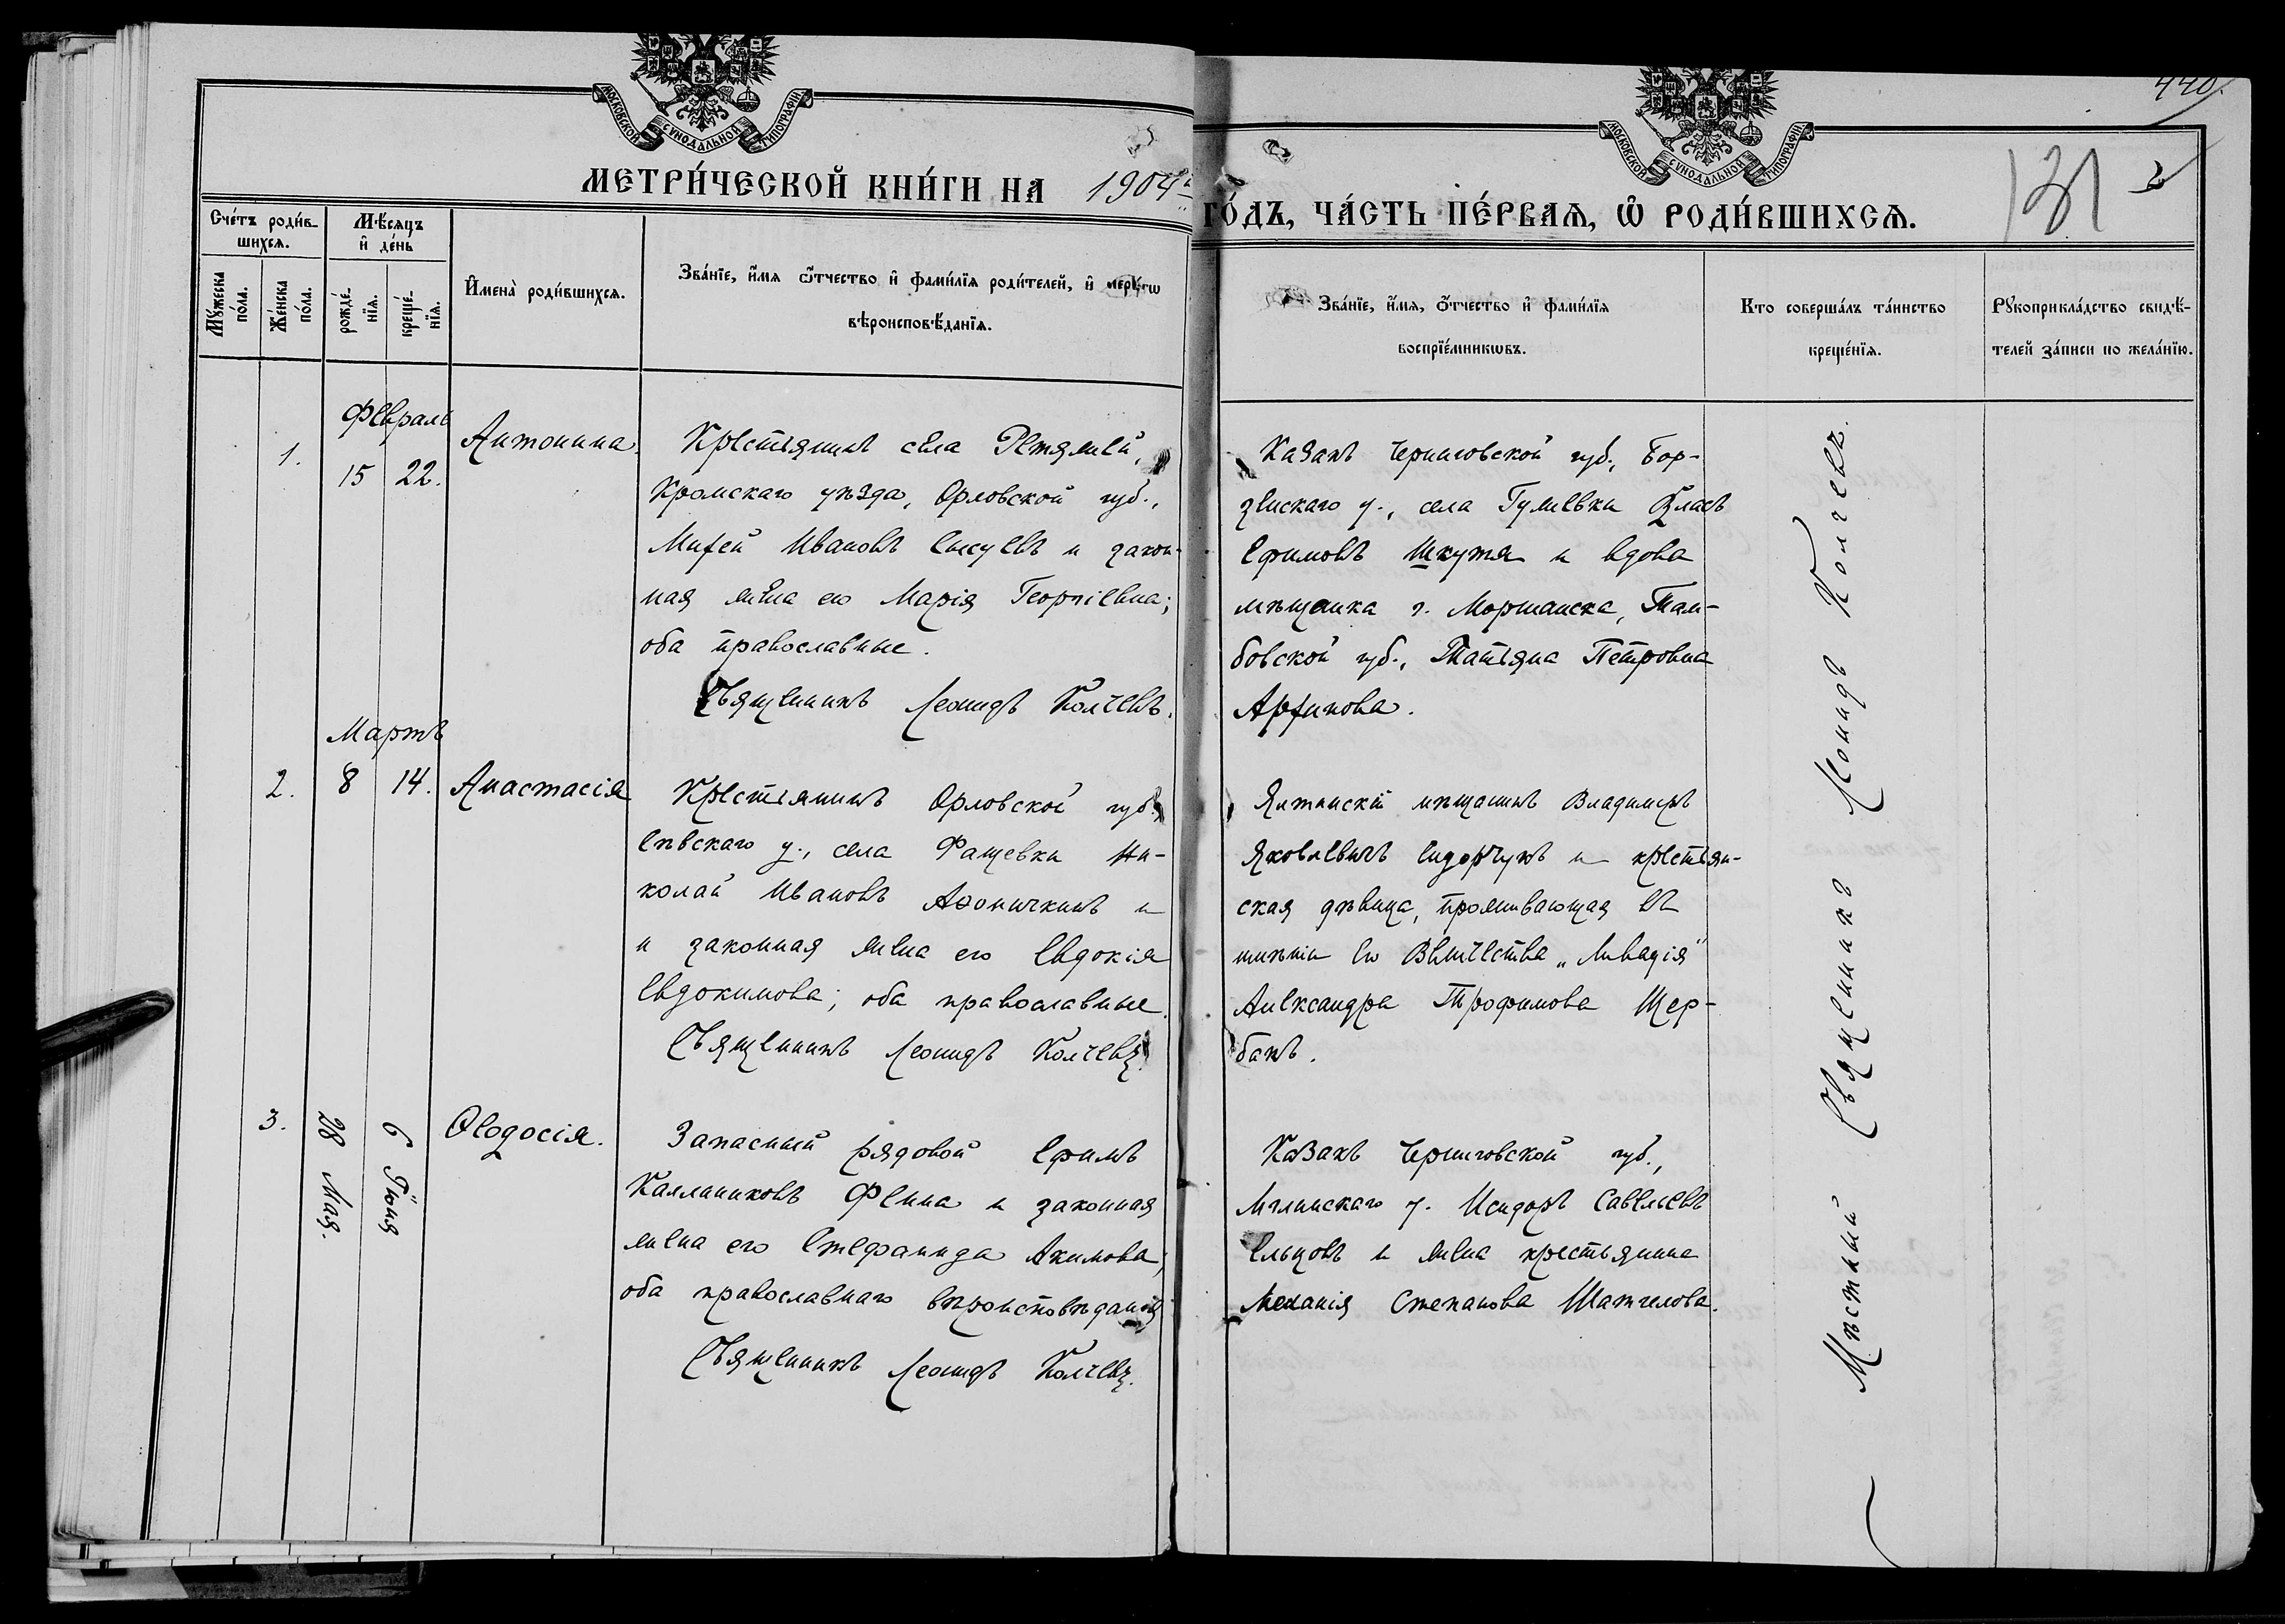 440.
131
МОСКОВСКОЙ СѴНОДАЛЬНОЙ ТИПОГРАФІИ
МОСКОВСКОЙ СѴНОДАЛЬНОЙ ТИПОГРАФІИ
МЕТРИ́ЧЕСКОЙ КНИ́ГИ НА 1904й
ГО́ДЪ, ЧА́СТЬ ПЕ́РВАЯ, Ѡ҆ РОДИ́ВШИХСЯ.
Сче́тъ роди́в-
шихся.
Мꙋ́жеска
по́ла.
Же́нска
по́ла.
Мѣ́сяцъ
и҆ де́нь
рожде́-
нїя.
креще́-
нїя.
И҆мена̀ роди́вшихся.
Зва́нїе, и҆́мя ѻ҆́тчество и҆ фами́лїя роди́телей, и҆ которагѡ
вѣроисповѣ́данїя.
Зва́нїе, и҆́мя, ѻ҆́тчество и҆ фами́лїя
воспрїе́мникѡвъ.
Кто соверша́лъ та́инство
креще́нїя.
Рꙋкоприкла́дство свидѣ́-
телей за́писи по жела́нїю.
Февраль
1.
15 22.
Антонина.
Крестьянинъ села Ретяжей,
Кромскаго уѣзда, Орловской губ.,
Михей Ивановъ и закон-
ная жена его Марія Георгіевна;
оба православные.
Священникъ Леонидъ Колчевъ.
Казакъ Черниговской губ., Бор-
зенскаго у., села Гужевки Власъ
Ефимовъ Шкутя и вдова
мѣщанка г. Моршанска, Там-
бовской губ., Татьяна Петровна
Архипова.
Мартъ
2.
8 14.
Анастасія
Крестьянинъ Орловской губ.,
Сѣвскаго у., села Фащевки Ни-
колай Ивановъ Аѳоничкинъ и
и законная жена его Евдокія
Евдокимова; оба православные.
Священникъ Леонидъ Колчевъ.
Ялтинскій мѣщанинъ Владиміръ
Яковлевичъ Сидорчукъ и крестьян-
ская дѣвица, проживающая въ
имѣніи Его Величества „Ливадія“
Александра Трофимова Щер-
бакъ.
3.
28 Мая.
6 Іюня
Ѳеодосія.
Запасный рядовой Ефимъ
Каллиниковъ Фенина и законная
жена его Стефанида Акимова;
оба православнаго вѣроисповѣданія
Священникъ Леонидъ Колчевъ.
Казакъ Черниговской губ.,
Мглинскаго у. Исидоръ Савельевъ
Ельцовъ и жена крестьянина
Меланія Степанова Шатилова.
Мѣстный Священникъ Леонидъ Колчевъ.